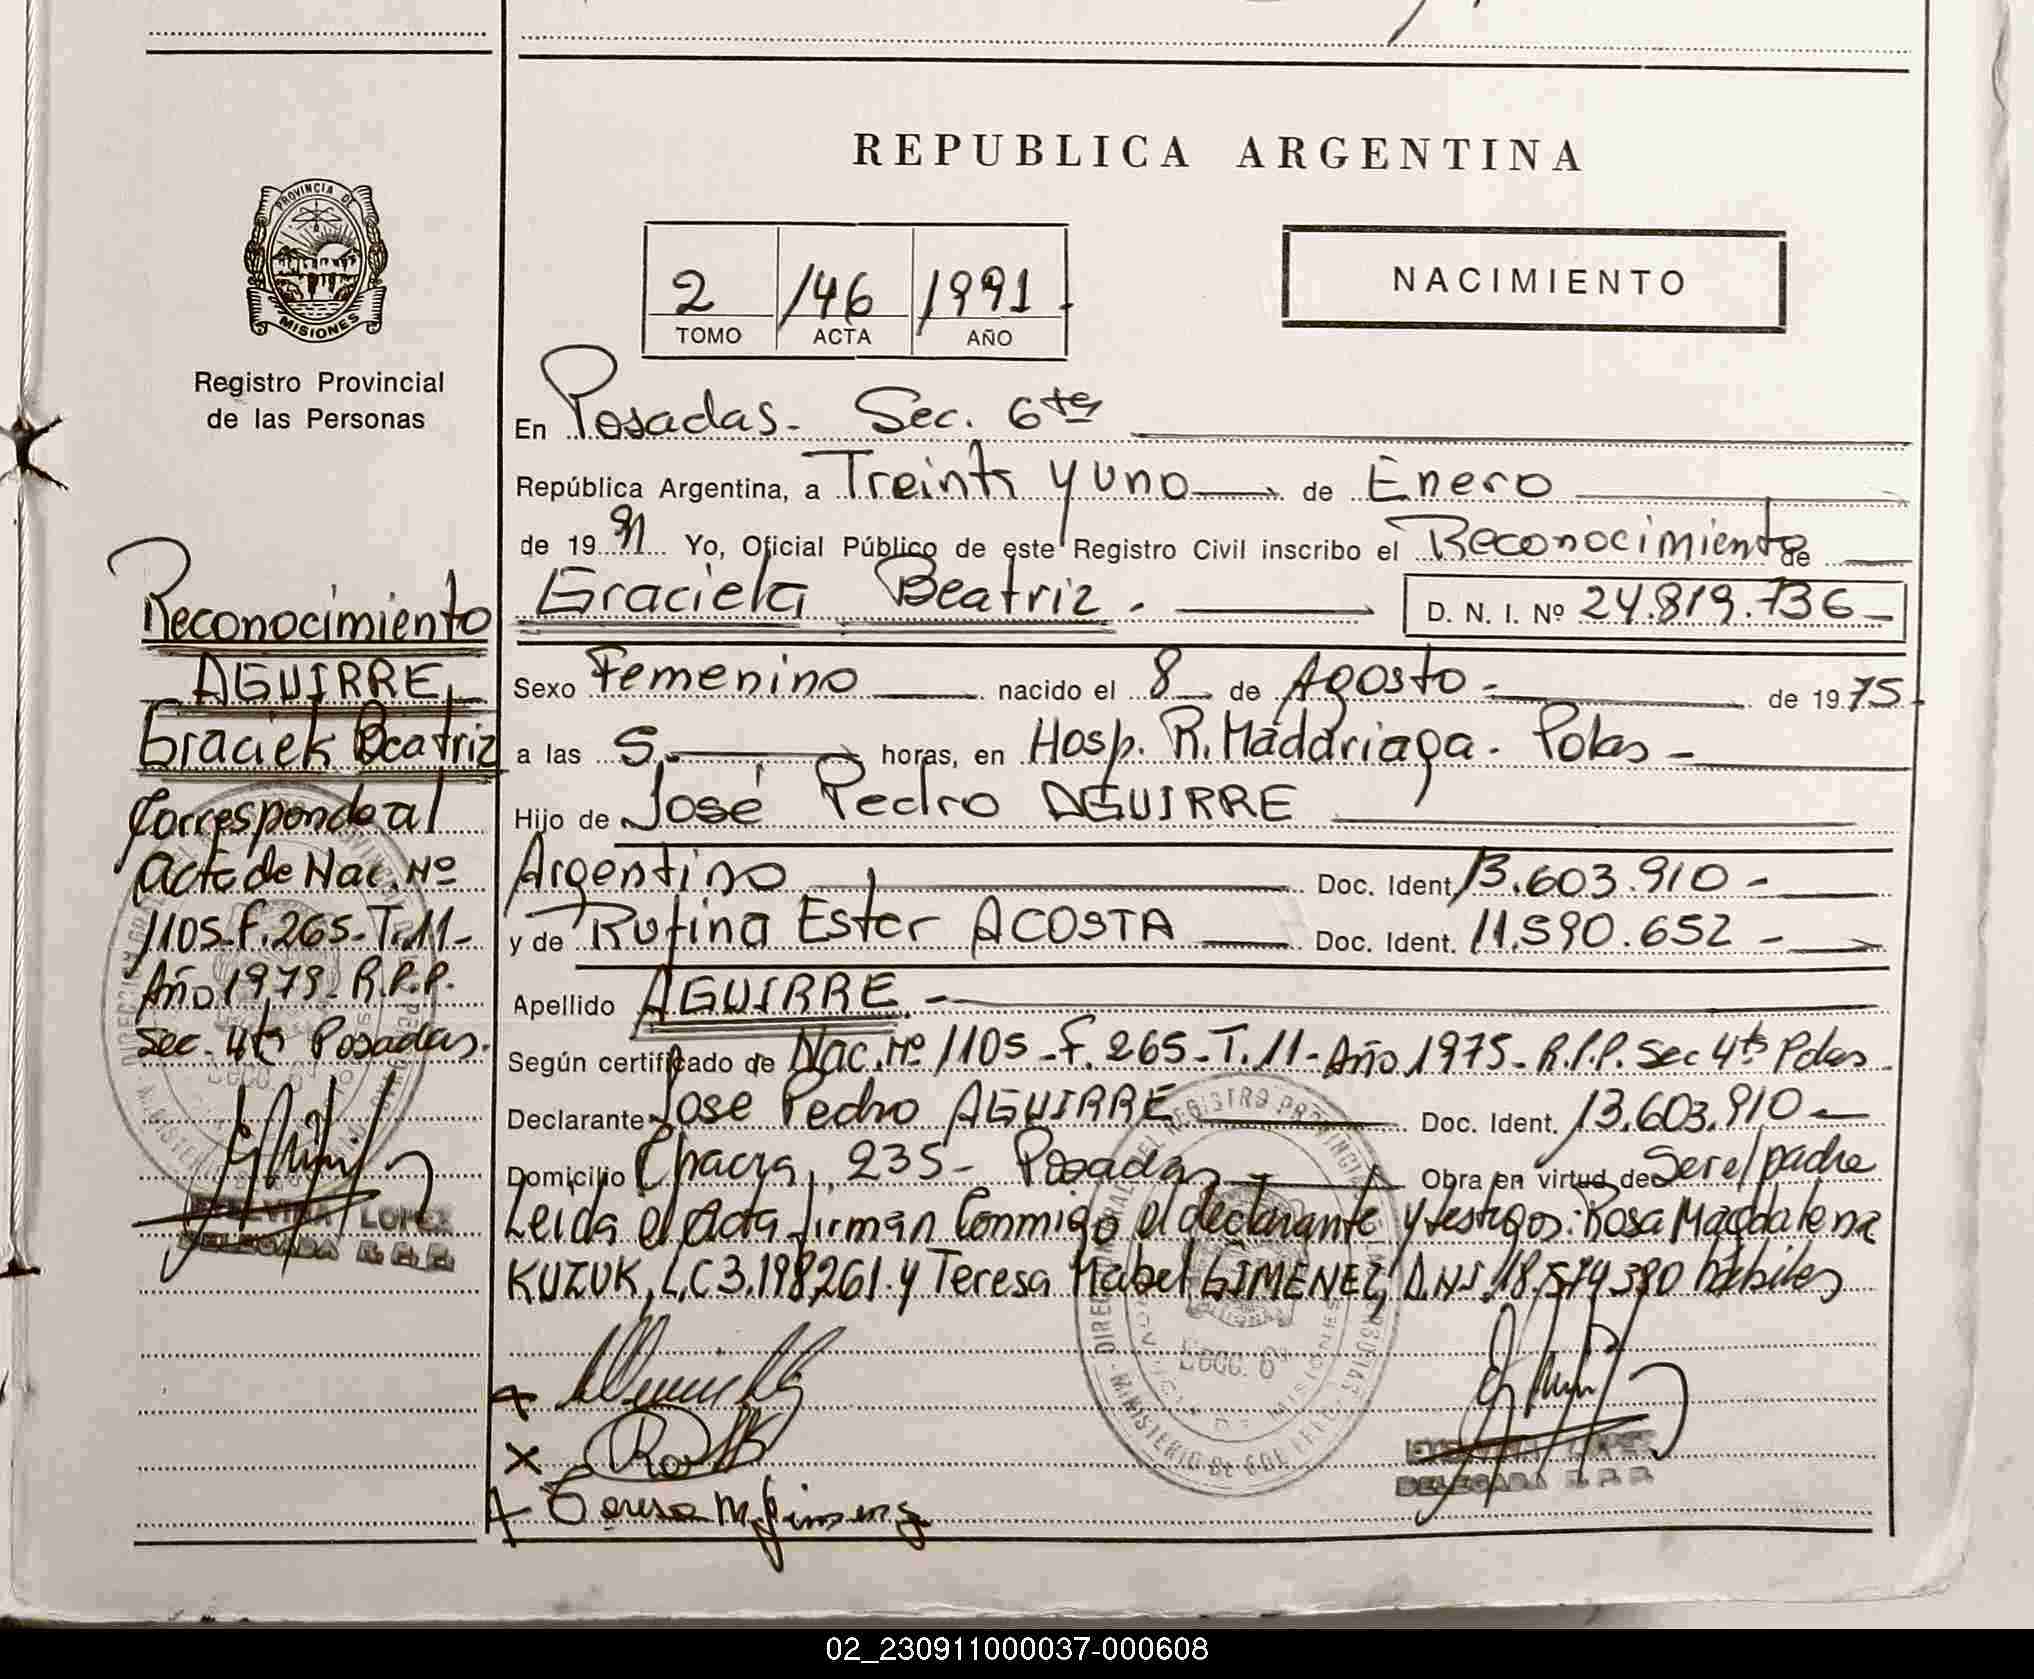 REPUBLICA ARGENTINA
PROVINCIA DE
MISIONES
Registro Provincial
de las Personas
2 /46 /1991
TOMO ACTA AÑO
NACIMIENTO
En Posadas - Sec. 6ta
República Argentina, a Treinta y uno de Enero
de 19 91 Yo, Oficial Público de este Registro Civil inscribo el Reconocimiento de
Graciela Beatriz . D. N. I. Nº 24.819.736
Sexo Femenino nacido el 8 de Agosto - de 19 75
a las 5. horas, en Hosp. R. Madariaga - Pdas -
Hijo de José Pedro AGUIRRE
Argentino Doc. Ident. 13.603.910 -
y de Rufina Ester ACOSTA Doc. Ident. 11.590.652 -
Apellido AGUIRRE . -
Según certificado de Nac. Nº 1105 - F. 265 - T. 11 - Año 1975 - R.P.P. Sec 4ta Pdas
Declarante Jose Pedro AGUIRRE Doc. Ident. 13.603.910 -
Domicilio Chacra, 235 - Posadas Obra en virtud de Ser el padre
Leida el Acta firman Conmigo el declarante y testigos: Rosa Magdalena
KUZUK, L.C 3.198,261. y Teresa Mabel GIMENEZ, D.N.I 18,574,380 hábiles
Teresa M. Gimenez
LOPEZ
DELEGADA R.P.P.
Reconocimiento
AGUIRRE,
Graciela Beatriz
Corresponde al
Acta de Nac. Nº
1105 - F. 265 - T. 11 -
Año 1979 - R.P.P.
Sec. 4ta Posadas.
LOPEZ
DELEGADA R.P.P.
02_230911000037-000608